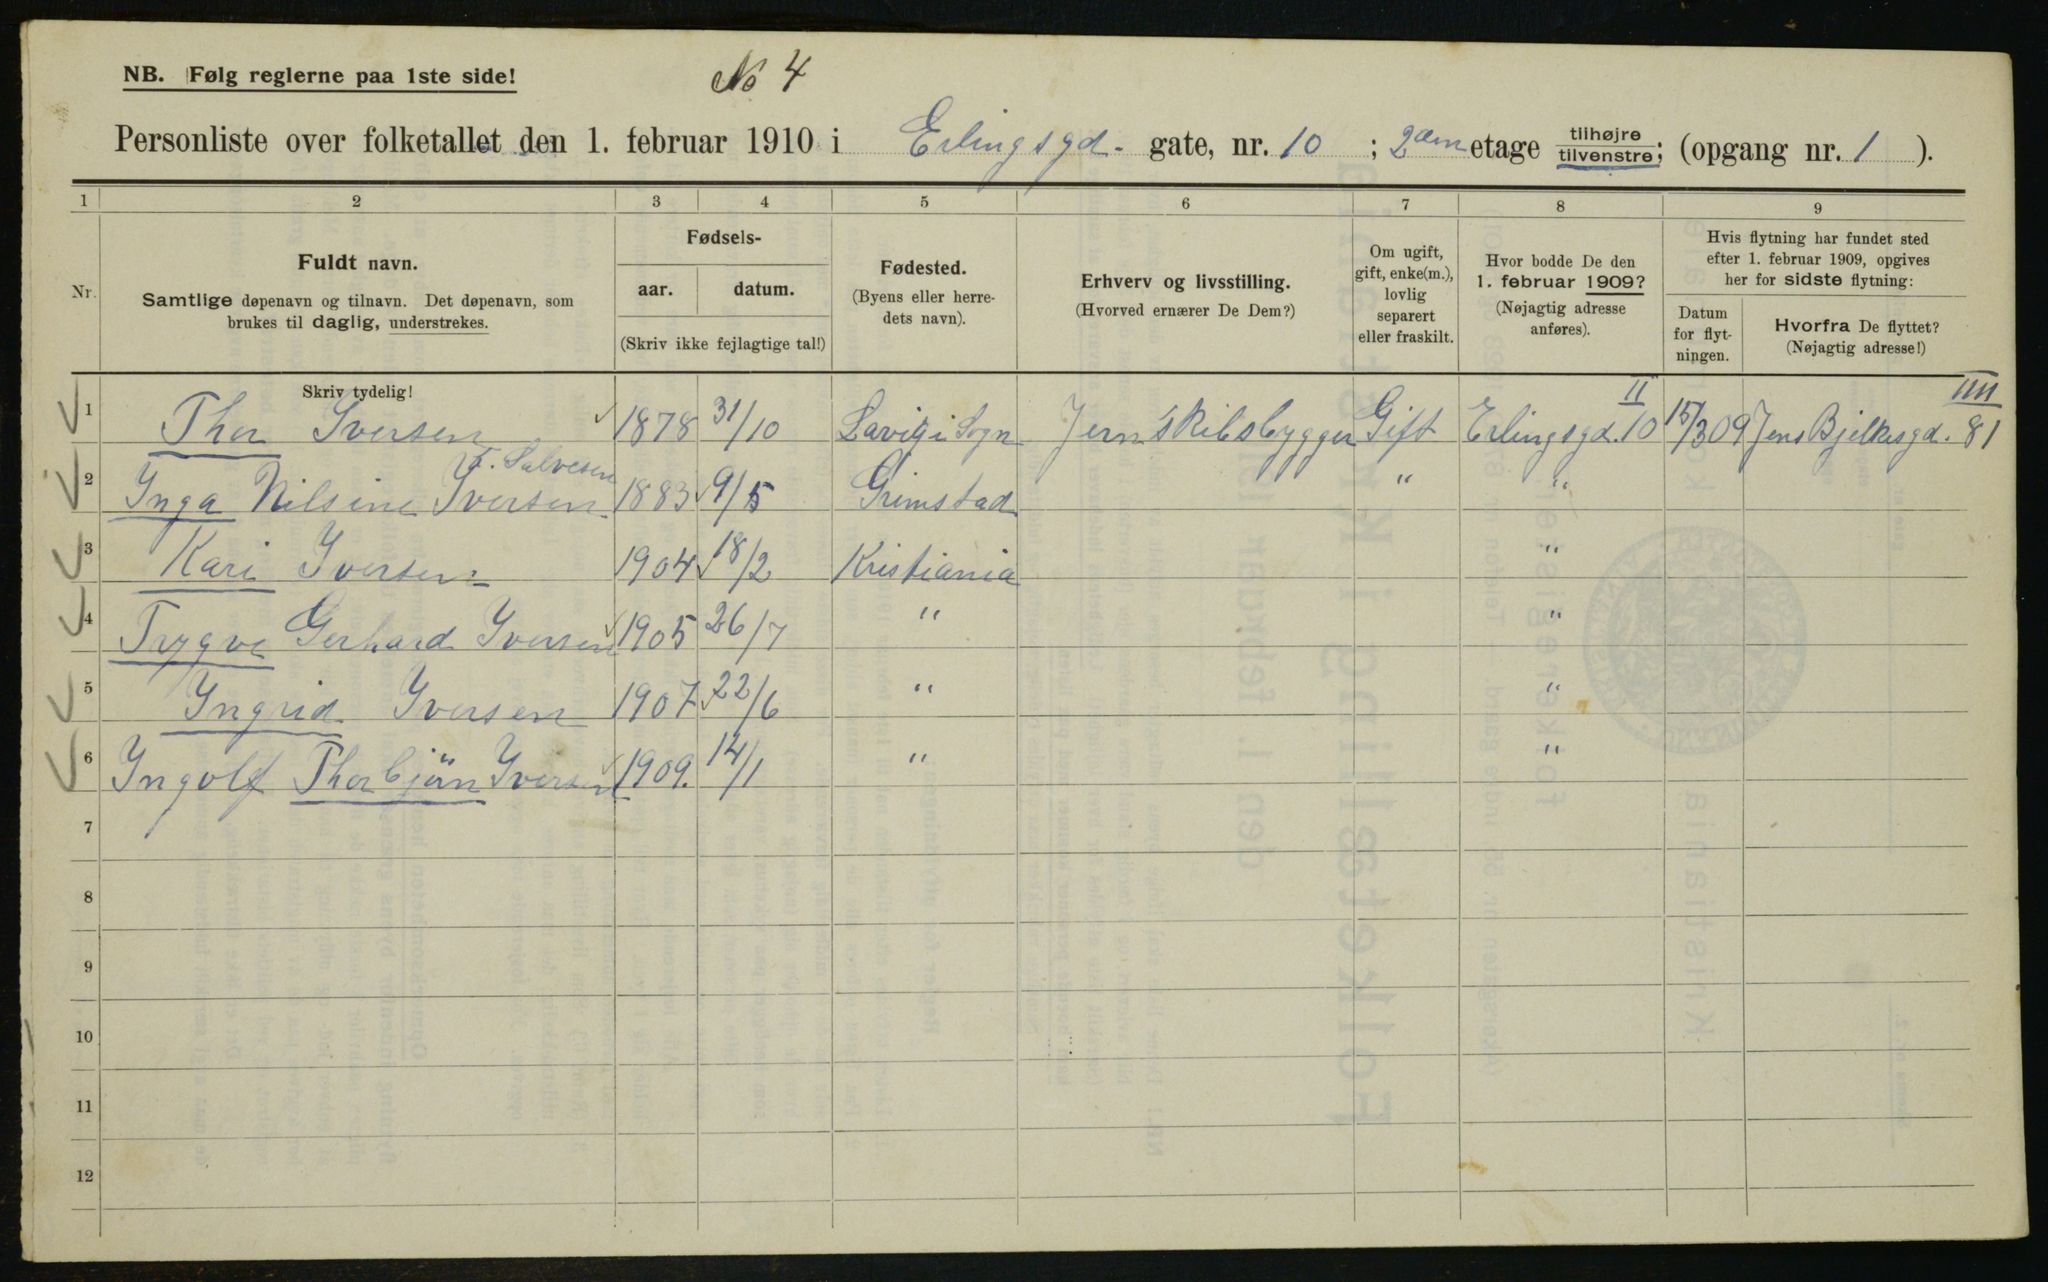 NB. Følg reglerne paa 1ste side!
No 4
Personliste over folketallet den 1. februar 1910 i Erlingsgd. gate, nr. 10 ; 2den etage tilhøjre tilvenstre; (opgang nr. 1 ).
1 2 3 4 5 6 7 8 9
Nr.
Fuldt navn.
Samtlige døpenavn og tilnavn. Det døpenavn, som
brukes til daglig, understrekes.
Skriv tydelig!
Fødsels-
aar. datum.
(Skriv ikke fejlagtige tal!)
Fødested.
(Byens eller herre-
dets navn).
Erhverv og livsstilling.
(Hvorved ernærer De Dem?)
Om ugift,
gift, enke(m.),
lovlig
separert
eller fraskilt.
Hvor bodde De den
1. februar 1909?
(Nøjagtig adresse
anføres).
Hvis flytning har fundet sted
efter 1. februar 1909, opgives
her for sidste flytning:
Datum
for flyt-
ningen.
Hvorfra De flyttet?
(Nøjagtig adresse!)
1 Thor Iversen 1878 31/10 Lavik i Sogn Jernskibsbygger Gift Erlingsgd. 10 II 15/3 09 Jens Bjelkesgd. 81 IIII
f. Salvesen
2 Inga Nilsine Iversen 1883 9/5 Grimstad " "
3 Kari Iversen 1904 18/2 Kristiania "
4 Trygve Gerhard Iversen 1905 26/7 " "
5 Ingrid Iversen 1907 22/6 " "
6 Ingolf Thorbjørn Iversen 1909. 14/1 " "
7
8
9
10
11
12